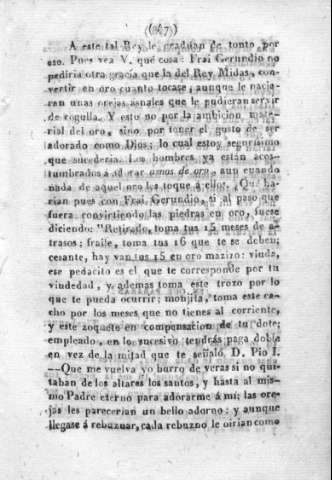 (247)
A este tal Rey le graduan de tonto por
eso. Pues vea V. qué cosa: Frai Gerundio no
pediria otra gracia que la del Rey Midas, con-
vertir en oro cuanto tocase, aunque le nacie-
ran unas orejas asnales que le pudieran servir
de cogulla. Y esto no por la ambicion mate-
rial del oro, sino por tener el gusto de ser
adorado como Dios; lo cual estoy segurísimo
que sucederia. Los hombres ya están acos-
tumbrados á adorar amos de oro, aun cuando
nada de aquel oro les toque á ellos: ¿Qué ha-
rian pues con Frai Gerundio, si al paso que
fuera convirtiendo las piedras en oro, fuese
diciendo: "Retirado, toma tus 15 meses de a-
trasos; fraile, toma tus 16 que te se deben;
cesante, hay van tus 15 en oro mazizo: viuda,
ese pedacito es el que te corresponde por tu
viudedad, y ademas toma este trozo por lo
que te pueda ocurrir; monjita, toma este ca-
cho por los meses que no tienes al corriente,
y este zoquete en compensacion de tu dote;
empleado, en lo sucesivo tendrás paga doble
en vez de la mitad que te señaló D. Pio I.
—Que me vuelva yo burro de veras si no qui-
taban de los altares los santos, y hasta al mis-
mo Padre eterno para adorarme á mí; las ore-
jas les parecerian un bello adorno; y aunque
llegase á rebuznar, cada rebuzno le oirian como